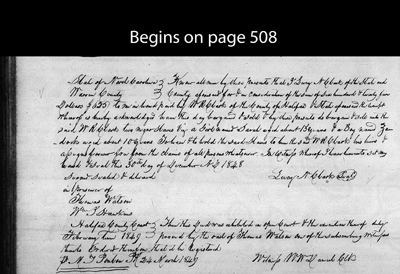 Begins on page 508
State of North Carolina Know all men by these Presents that I Lucy N Clark of the State and
Warren County County aforesaid for & in consideration of the sum of Six hundred & twenty five
Dollars $625 to me in hand paid by W R Clark of the County of Halifax & State aforesaid the receipt
whereof is hereby acknowledged have this day bargained & sold & by these presents do bargain & sell unto the
said W R Clark two negro Slaves by a woman Sarah aged about & a Boy named
aged about 10 years To have & to hold the said Slaves to him the said W R Clark his heirs &
assigns forever free from the claims of all persons whatsoever In witness whereof I have hereunto set my
hand & Seal this 30th day of December A D 1848
Signed Sealed & delivered Lucy N Clark (Seal)
in presence of
Thomas Watson
Wm T
Halifax County Court Then this Deed was exhibited in open Court & the execution thereof duly
February Term 1849 proved by the oath of Thomas Watson one of the subscribing witnesses
thereto Ordered therefore that it be registered
24 March 1849 Witness W W Daniel Clk